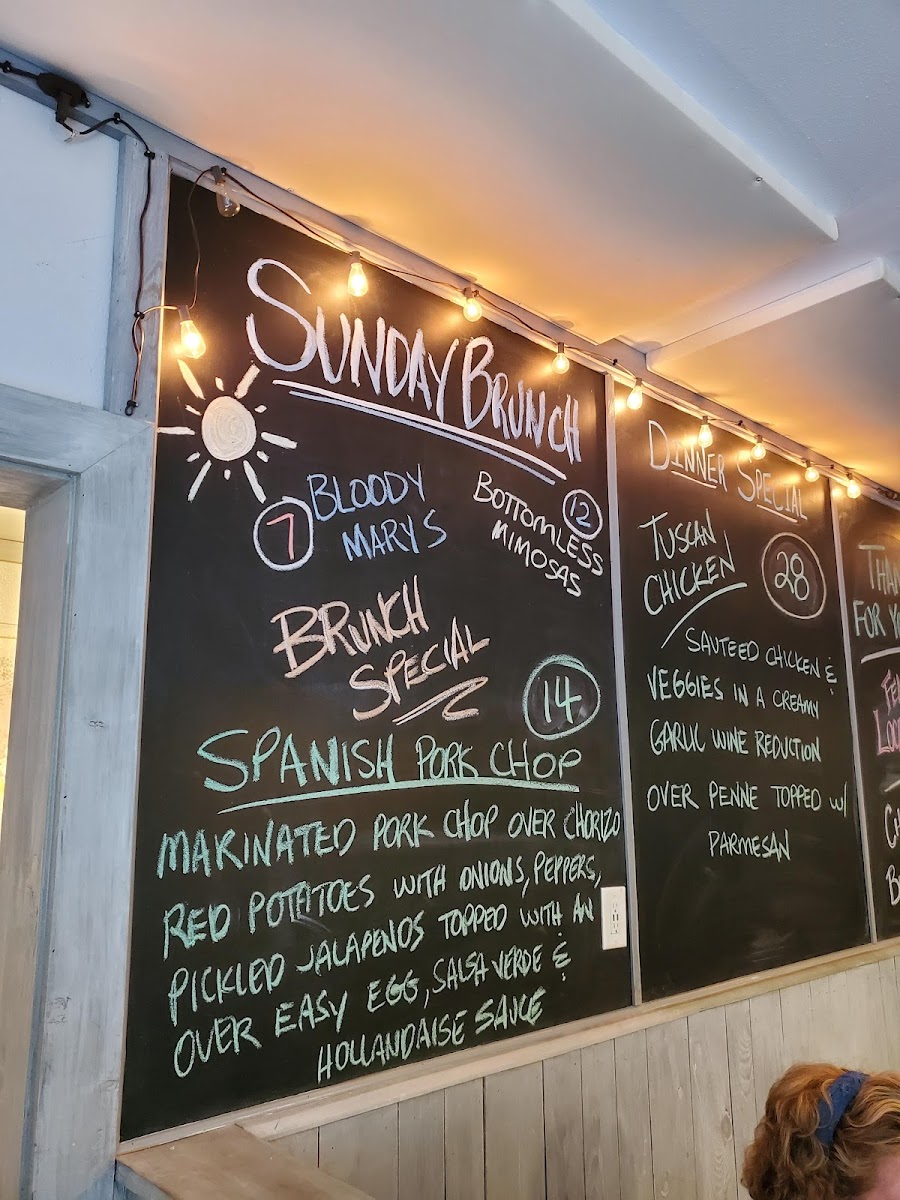 SUNDAY BRUNCH
7 BLOODY
MARYS
BOTTOMLESS 12
MIMOSAS
BRUNCH
SPECIAL
14
SPANISH PORK CHOP
MARINATED PORK CHOP OVER CHORIZO
RED POTATOES WITH ONIONS, PEPPERS,
PICKLED JALAPENOS TOPPED WITH AN
OVER EASY EGG, SALSA VERDE &
HOLLANDAISE SAUCE
DINNER SPECIAL
TUSCAN
CHICKEN
28
SAUTEED CHICKEN &
VEGGIES IN A CREAMY
GARLIC WINE REDUCTION
OVER PENNE TOPPED W/
PARMESAN
FOR